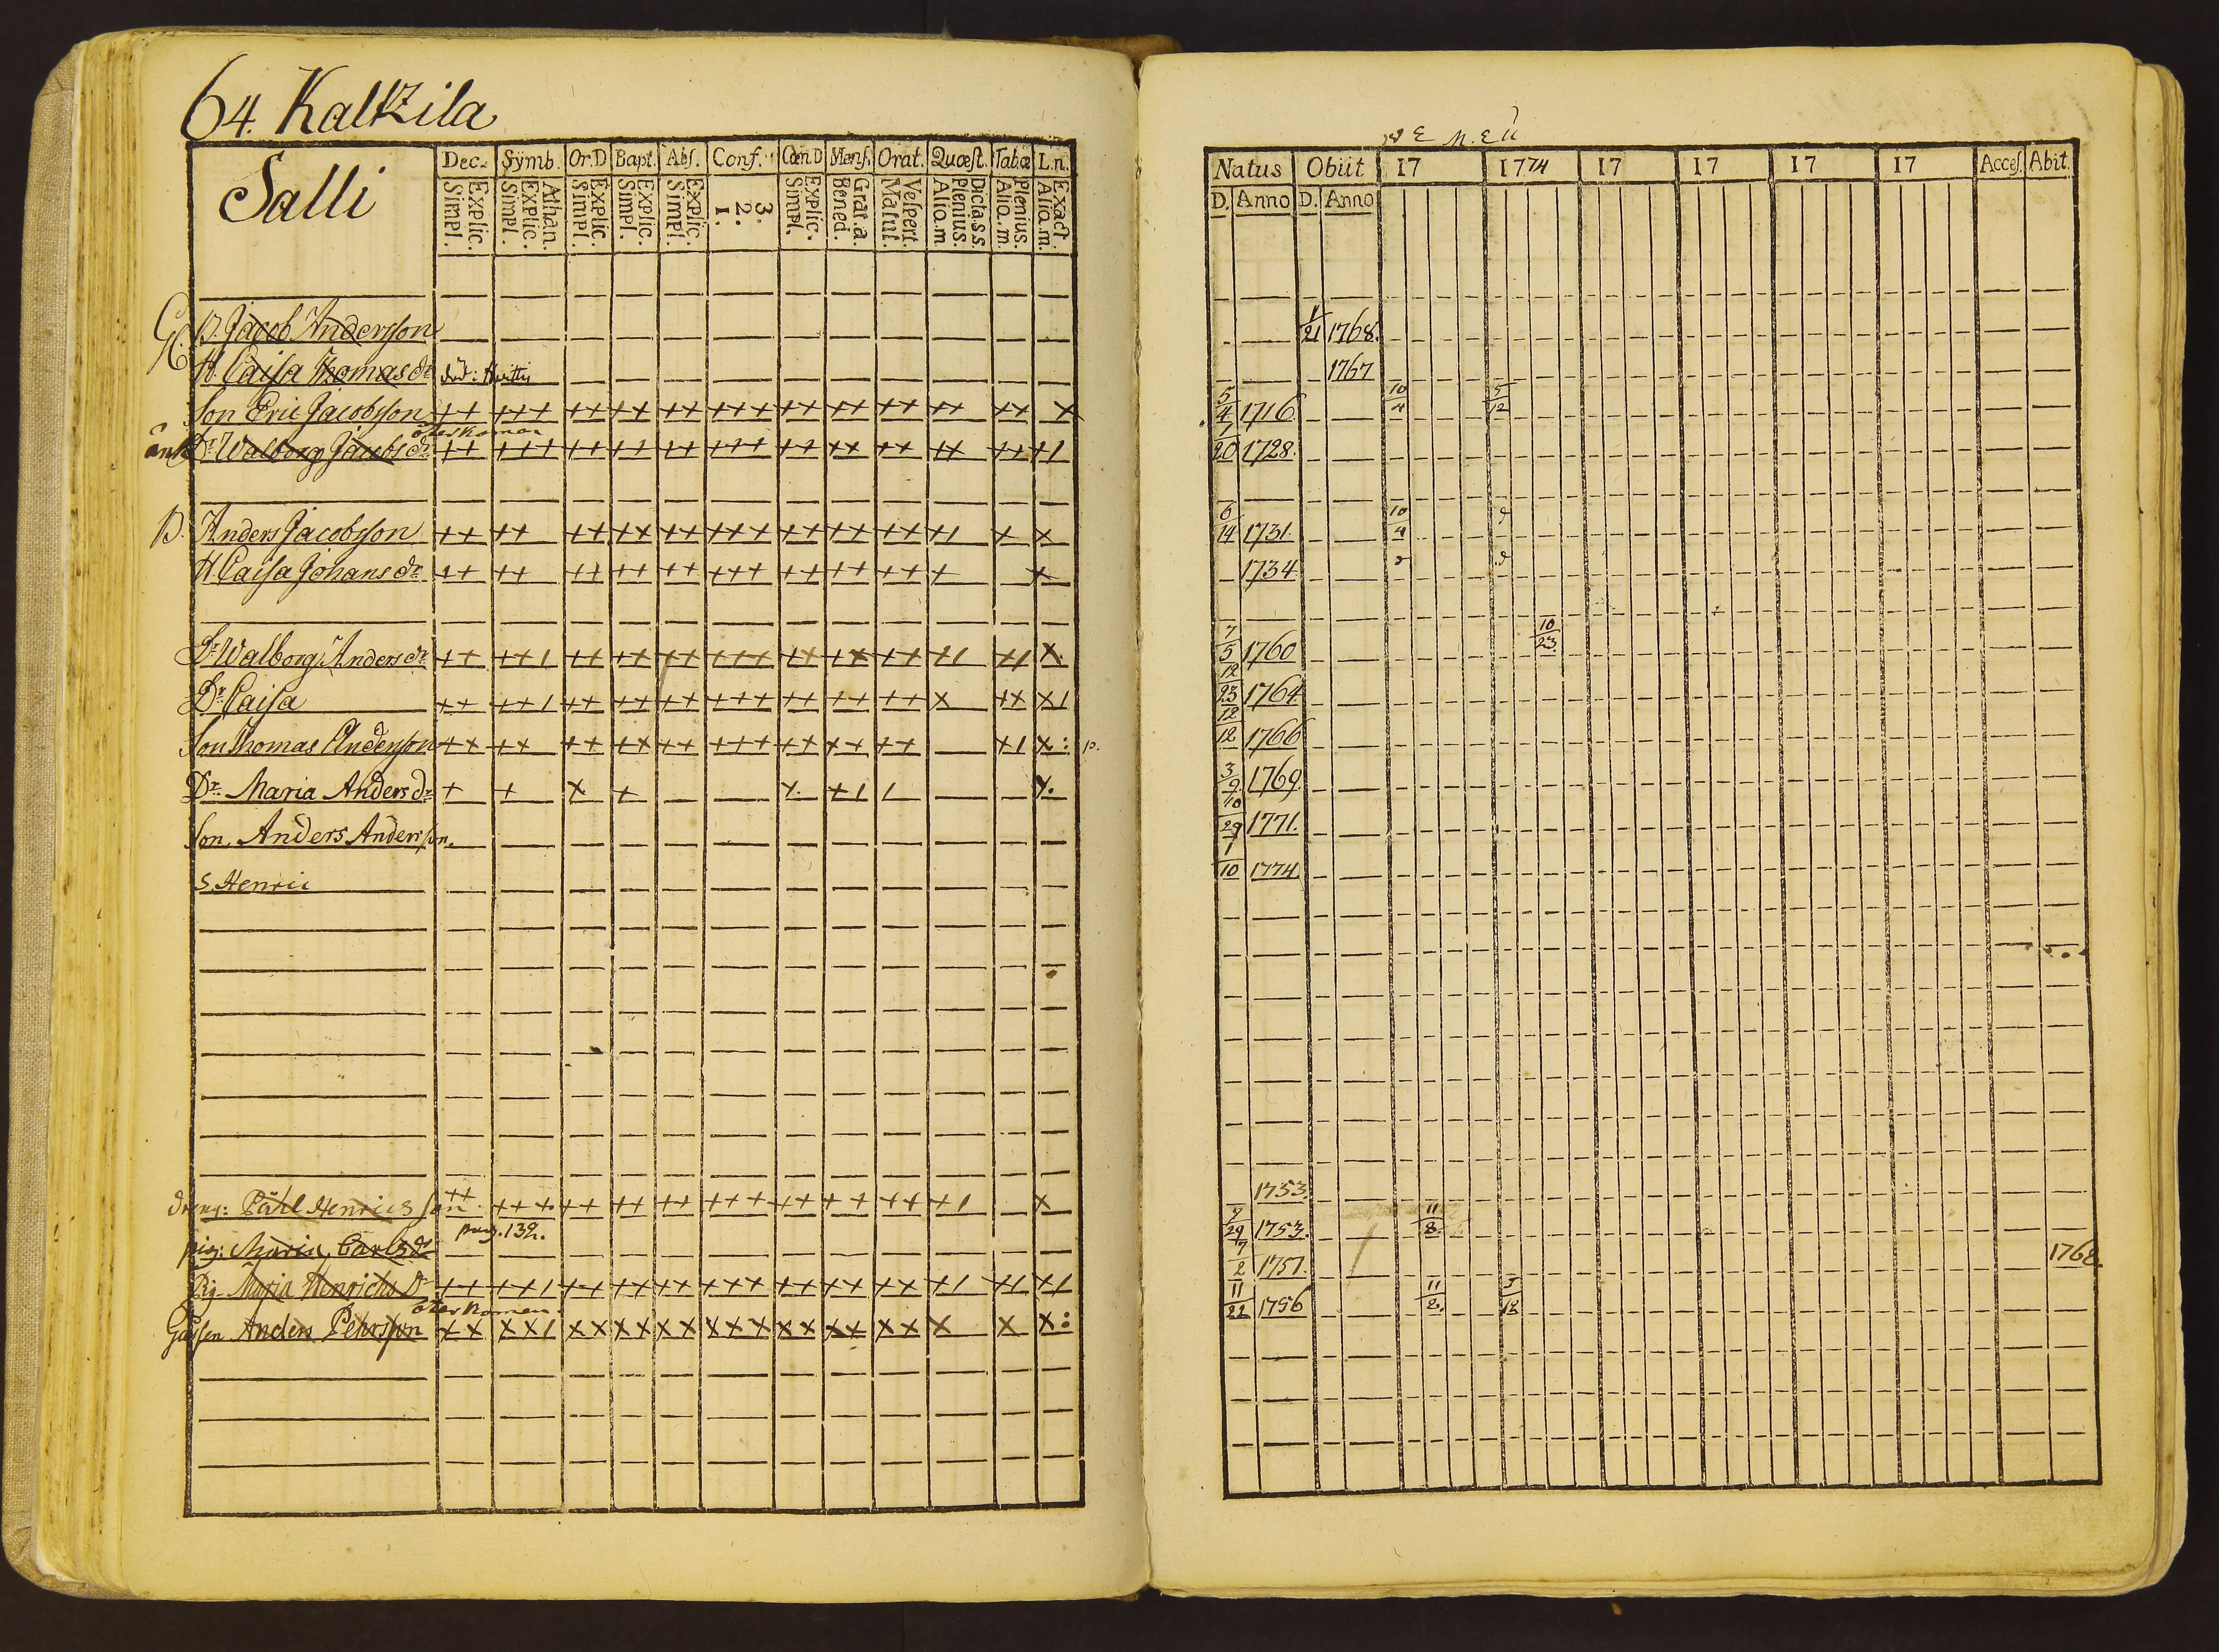 64. Kaltzila
Salli
Dec. Symb. Or.D Bapt. Abs. Conf. Cœn.D Mens. Orat. Quæst. Tab.œ L.n.
Simpl. Explic. Simpl. Explic. Athan. Simpl. Explic. Simpl. Explic. Simpl. Explic. 1. 2. 3. Simpl. Explic. Bened. Grat.a. Matut. Vespert. Alio.m Plenius. Dicta s.s. Alio.m. Plenius. Alio.m. Exact.
G. B. Jacob Andersson
H. Caisa Thomas dr
Son Eric Jacobsson ++ +++ ++ ++ ++ +++ ++ ++ ++ ++ ++ x
återkomen
änk. Dr Walborg Jacobs dr ++ +++ ++ ++ ++ +++ ++ ++ ++ ++ ++ +1
B. Anders Jacobsson ++ ++ ++ ++ ++ +++ ++ ++ ++ +1 + x
H. Caisa Johans dr ++ ++ ++ ++ ++ +++ ++ ++ ++ + x
Dr Walborg Anders dr ++ ++1 ++ ++ ++ +++ ++ ++ ++ +1 +1 x.
Dr Caisa ++ ++1 ++ ++ ++ +++ ++ ++ ++ x ++ x1
Son Thomas Andersson ++ ++ ++ ++ ++ +++ ++ ++ ++ +1 x: p.
Dr. Maria Anders dr + + x + x. +1 1 x.
Son. Anders Andersson.
S. Henric
dreng: Påhl Henrics son ++ +++ ++ ++ ++ +++ ++ ++ ++ +1 x
pag. 132.
pig: Maria Carls dr
Pig. Maria Henrichs Dr ++ ++1 ++ ++ ++ +++ ++ ++ ++ +1 +1 +1
återkomen.
Gåssen Anders Pehrsson xx xx1 xx xx xx xxx xx xx xx x x x:
Natus Obiit 17 1774 17 17 17 17 Acces. Abit.
D. Anno D. Anno
1/21 1768.
1767
5/4 1716. 10/4 5/12
1/20 1728.
6/14 1731. 10/4 d
1734 d d
7/5 1760 10/23
12/23 1764
12/12 1766
3/9 1769
10/29 1771.
1/10 1774
1753.
2/29 1753. 11/8.
7/2 1751. 1768.
11/22 1756 11/2. 5/12